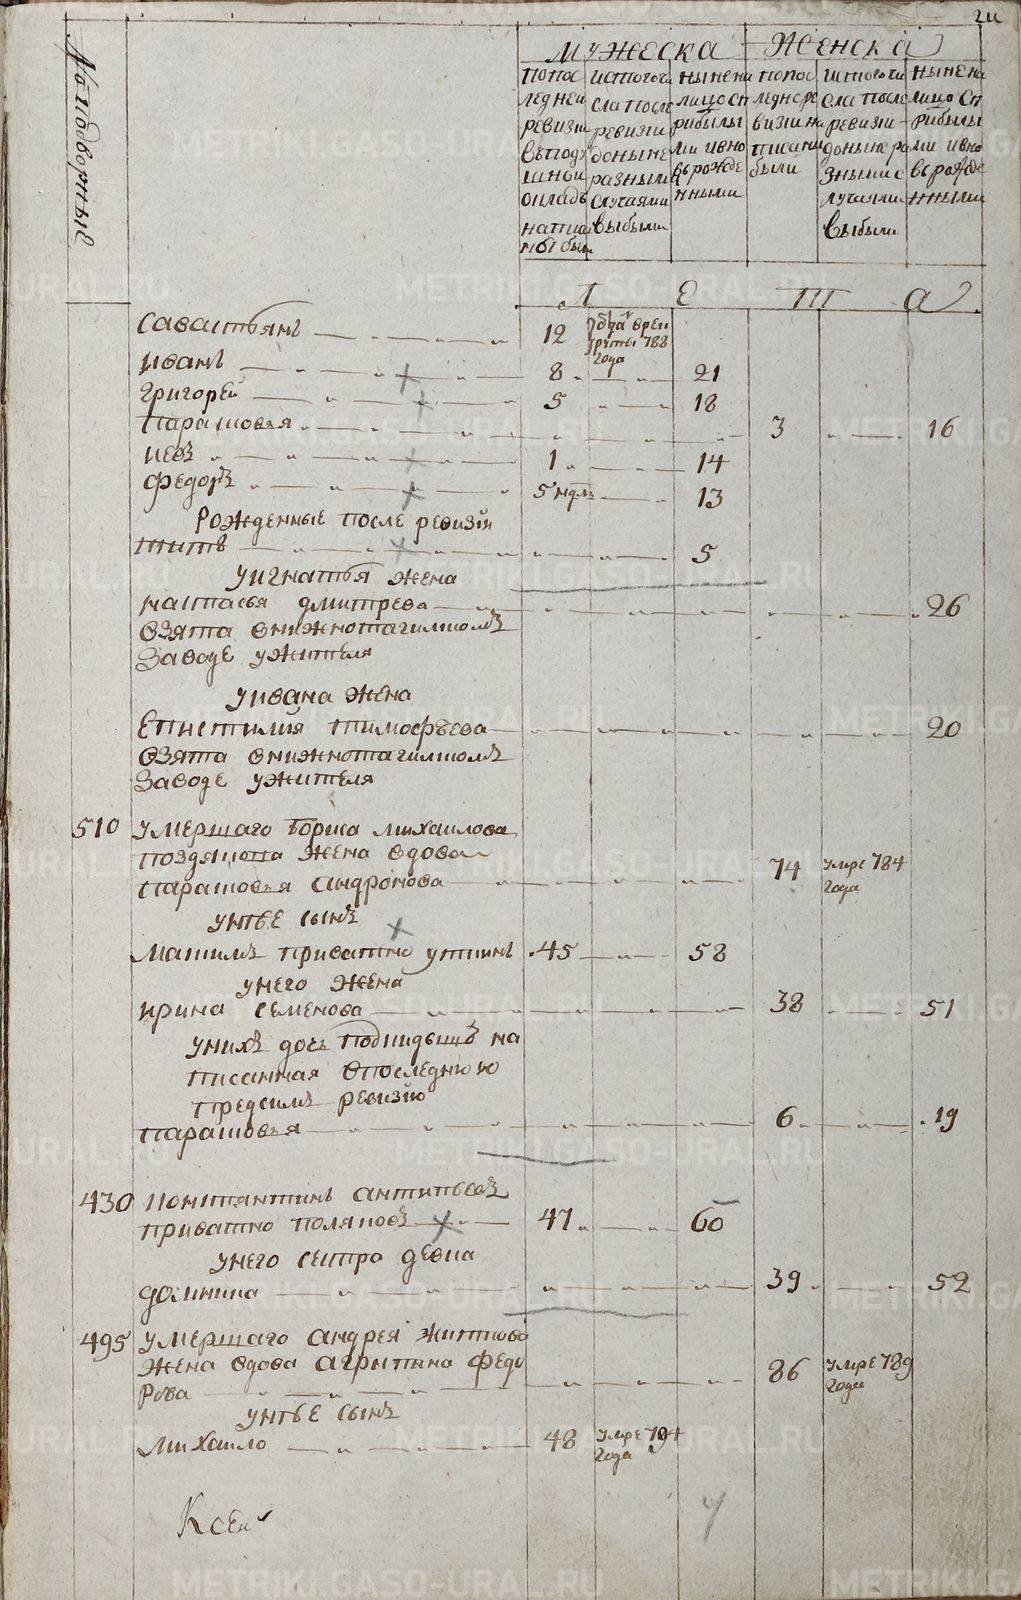 № подворные
мужеска женска
попос ледней ревизи вподу шной окладъ написа ны были
истогочи сла после ревизи доныне разными случаями выбыли
ныне на лицо сп рибылы ми ивно вьрожде нными
попос ледне ре визи на писаны были
истогочи сла после ревизи доныне ра зными с лучаями выбыли
ныне на лицо сп рибылы ми ивно вьрожде нными
л е т а
саваитьянъ 12 788 года
иванъ 8 21
григорей 5 18
парасковья 3 16
иевъ 1 14
федоръ 5 ндль 13
рожденные после ревизiи
титъ 5
уигнатья жена
настасья дмитрева 26
взята внижнотагилскомъ
заводе ужителя
уивана жена
епистилия тимофѣева 20
взята внижнотагилскомъ
заводе ужителя
510 умершаго бориса михаилова
жена вдова 74 умре 784 года
парасковья андронова
унѣе сынъ
максимъ приватно уткинъ 45 58
унего жена
ирина семенова 38 51
унихъ дочь на
писанная впоследнюю
предсимъ ревизiю
парасковья 6 19
430 константинъ антипьевъ
приватно поляковъ 47 60
унего сестра девка
домника 39 52
495 умершаго андрея житкова
жена вдова агрыпина федо 86 умре 789 года
рова
унѣе сынъ
михаило 48 умре 794 года
Ксеи
METRIKI.GASO-URAL.RU